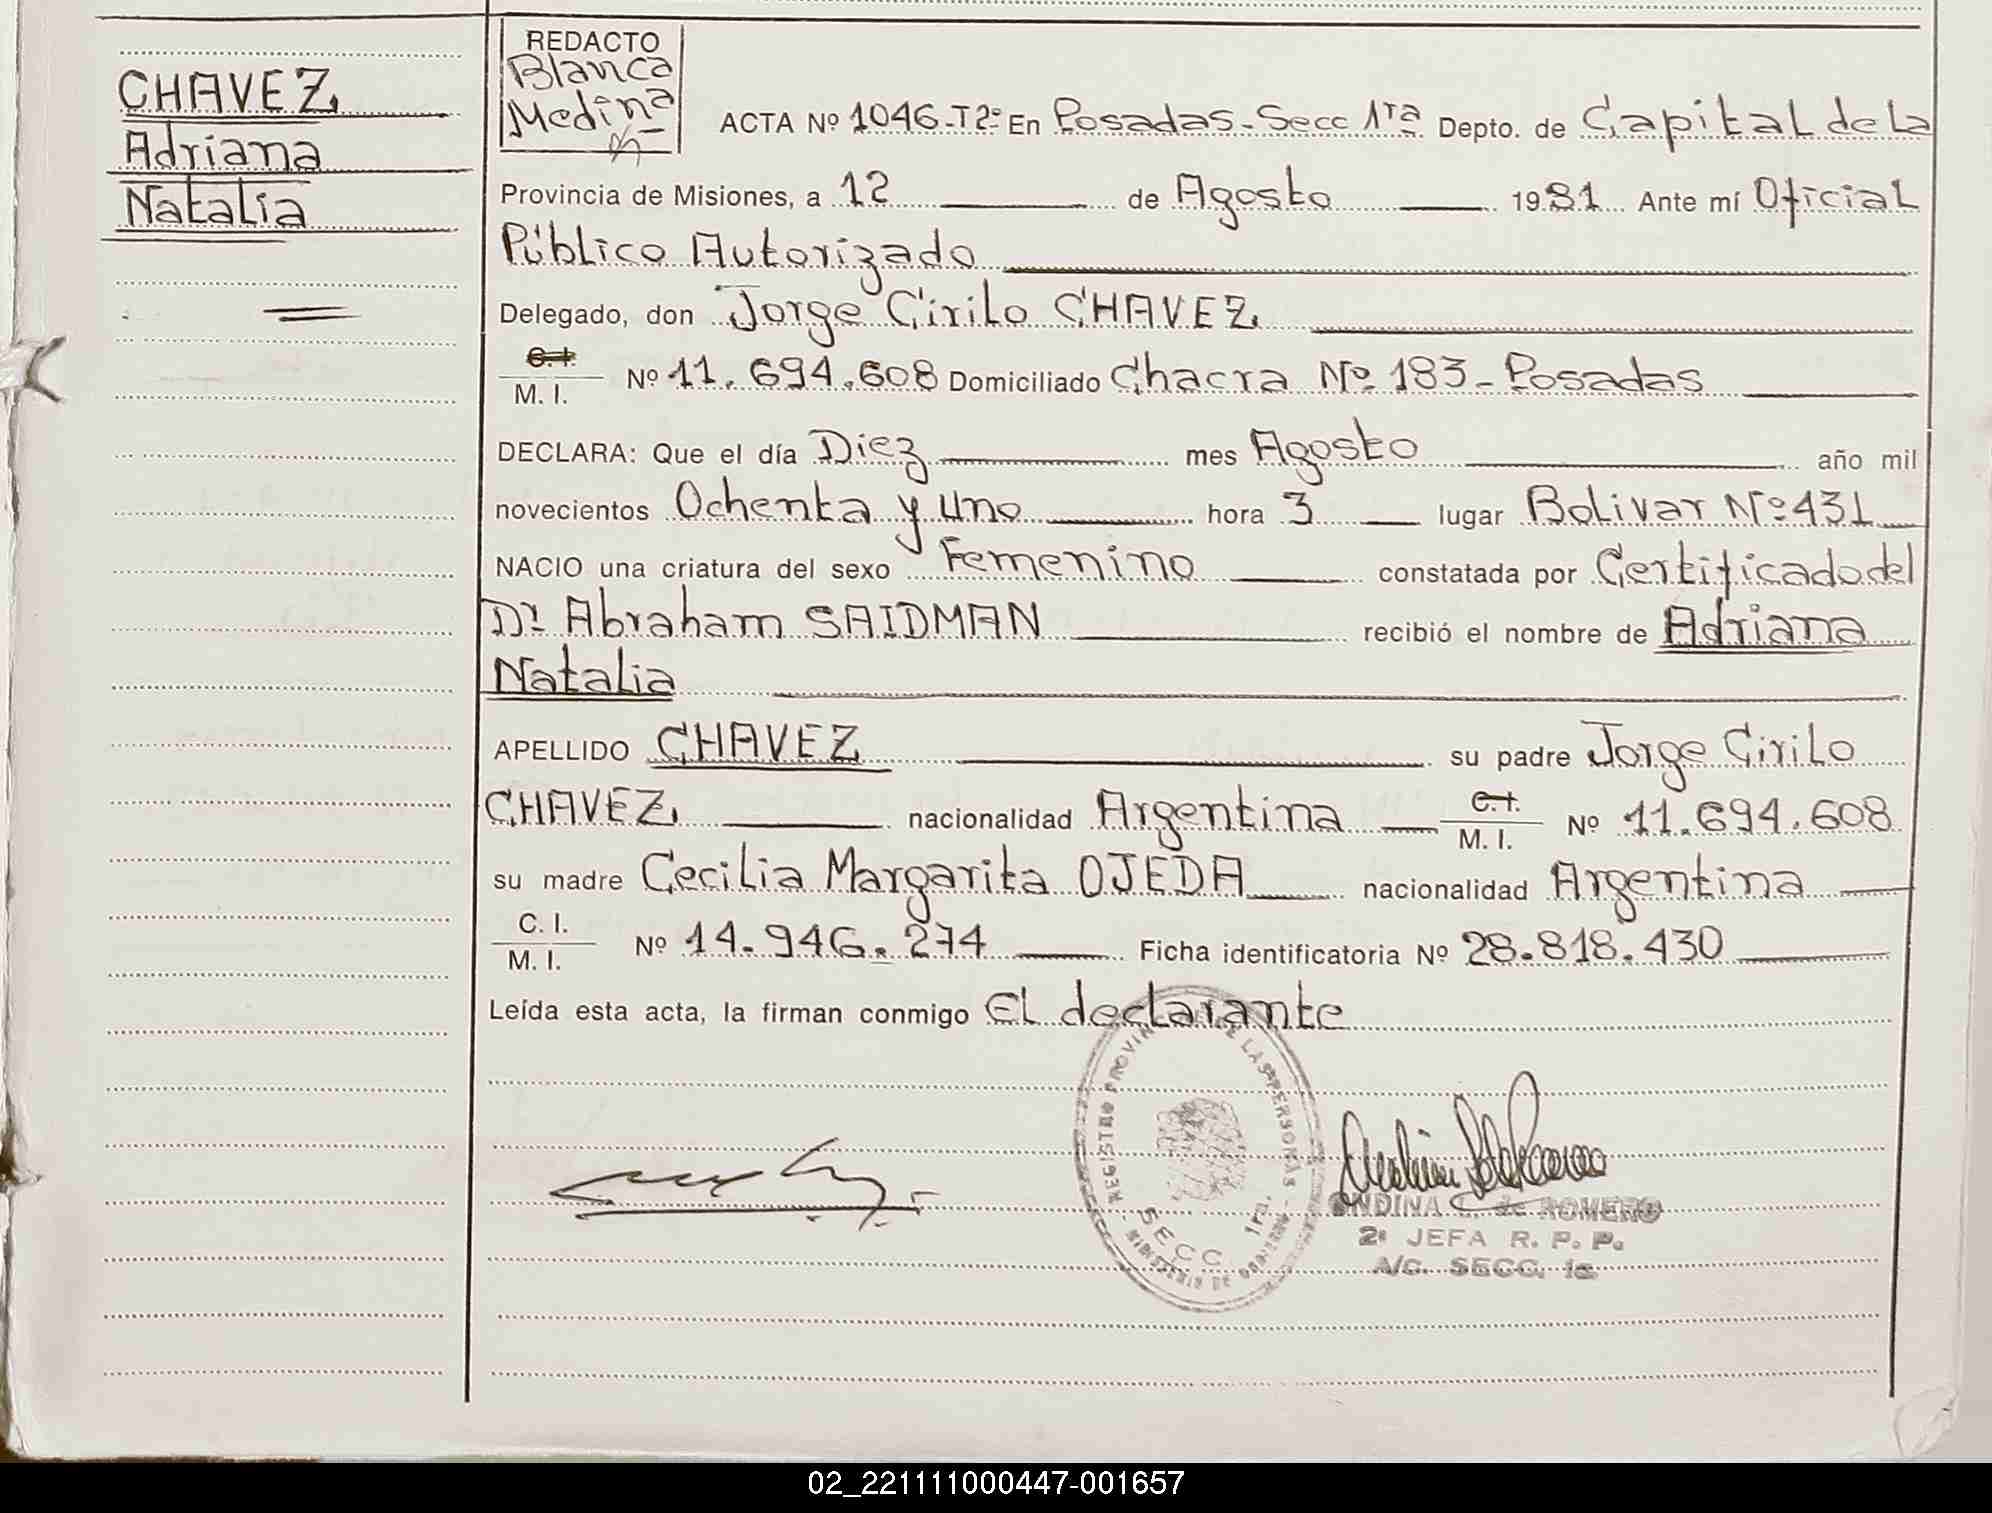 CHAVEZ,
Adriana
Natalia
REDACTO
Blanca
Medina
ACTA Nº 1046-T2º En Posadas-Secc 1ra Depto. de Capital de la
Provincia de Misiones, a 12 de Agosto 1981 Ante mí Oficial
Público Autorizado
Delegado, don Jorge Cirilo CHAVEZ,
C.I.
M. I. Nº 11.694.608 Domiciliado Chacra Nº 183-Posadas
DECLARA: Que el día Diez mes Agosto año mil
novecientos Ochenta y uno hora 3 lugar Bolivar Nº 431
NACIO una criatura del sexo Femenino constatada por Certificado del
Dr. Abraham SAIDMAN recibió el nombre de Adriana
Natalia
APELLIDO CHAVEZ su padre Jorge Cirilo
CHAVEZ, nacionalidad Argentina C.I. M. I. Nº 11.694.608
su madre Cecilia Margarita OJEDA nacionalidad Argentina
C. I.
M. I. Nº 14.946.274 Ficha identificatoria Nº 28.818.430
Leída esta acta, la firman conmigo El declarante
REGISTRO PROVIN DE LAS PERSONAS
SECC 1ra.
MINISTERIO DE GOBIERNO
ONDINA de ROMERO
2º JEFA R. P. P.
A/C. SECC. 1a
02_221111000447-001657